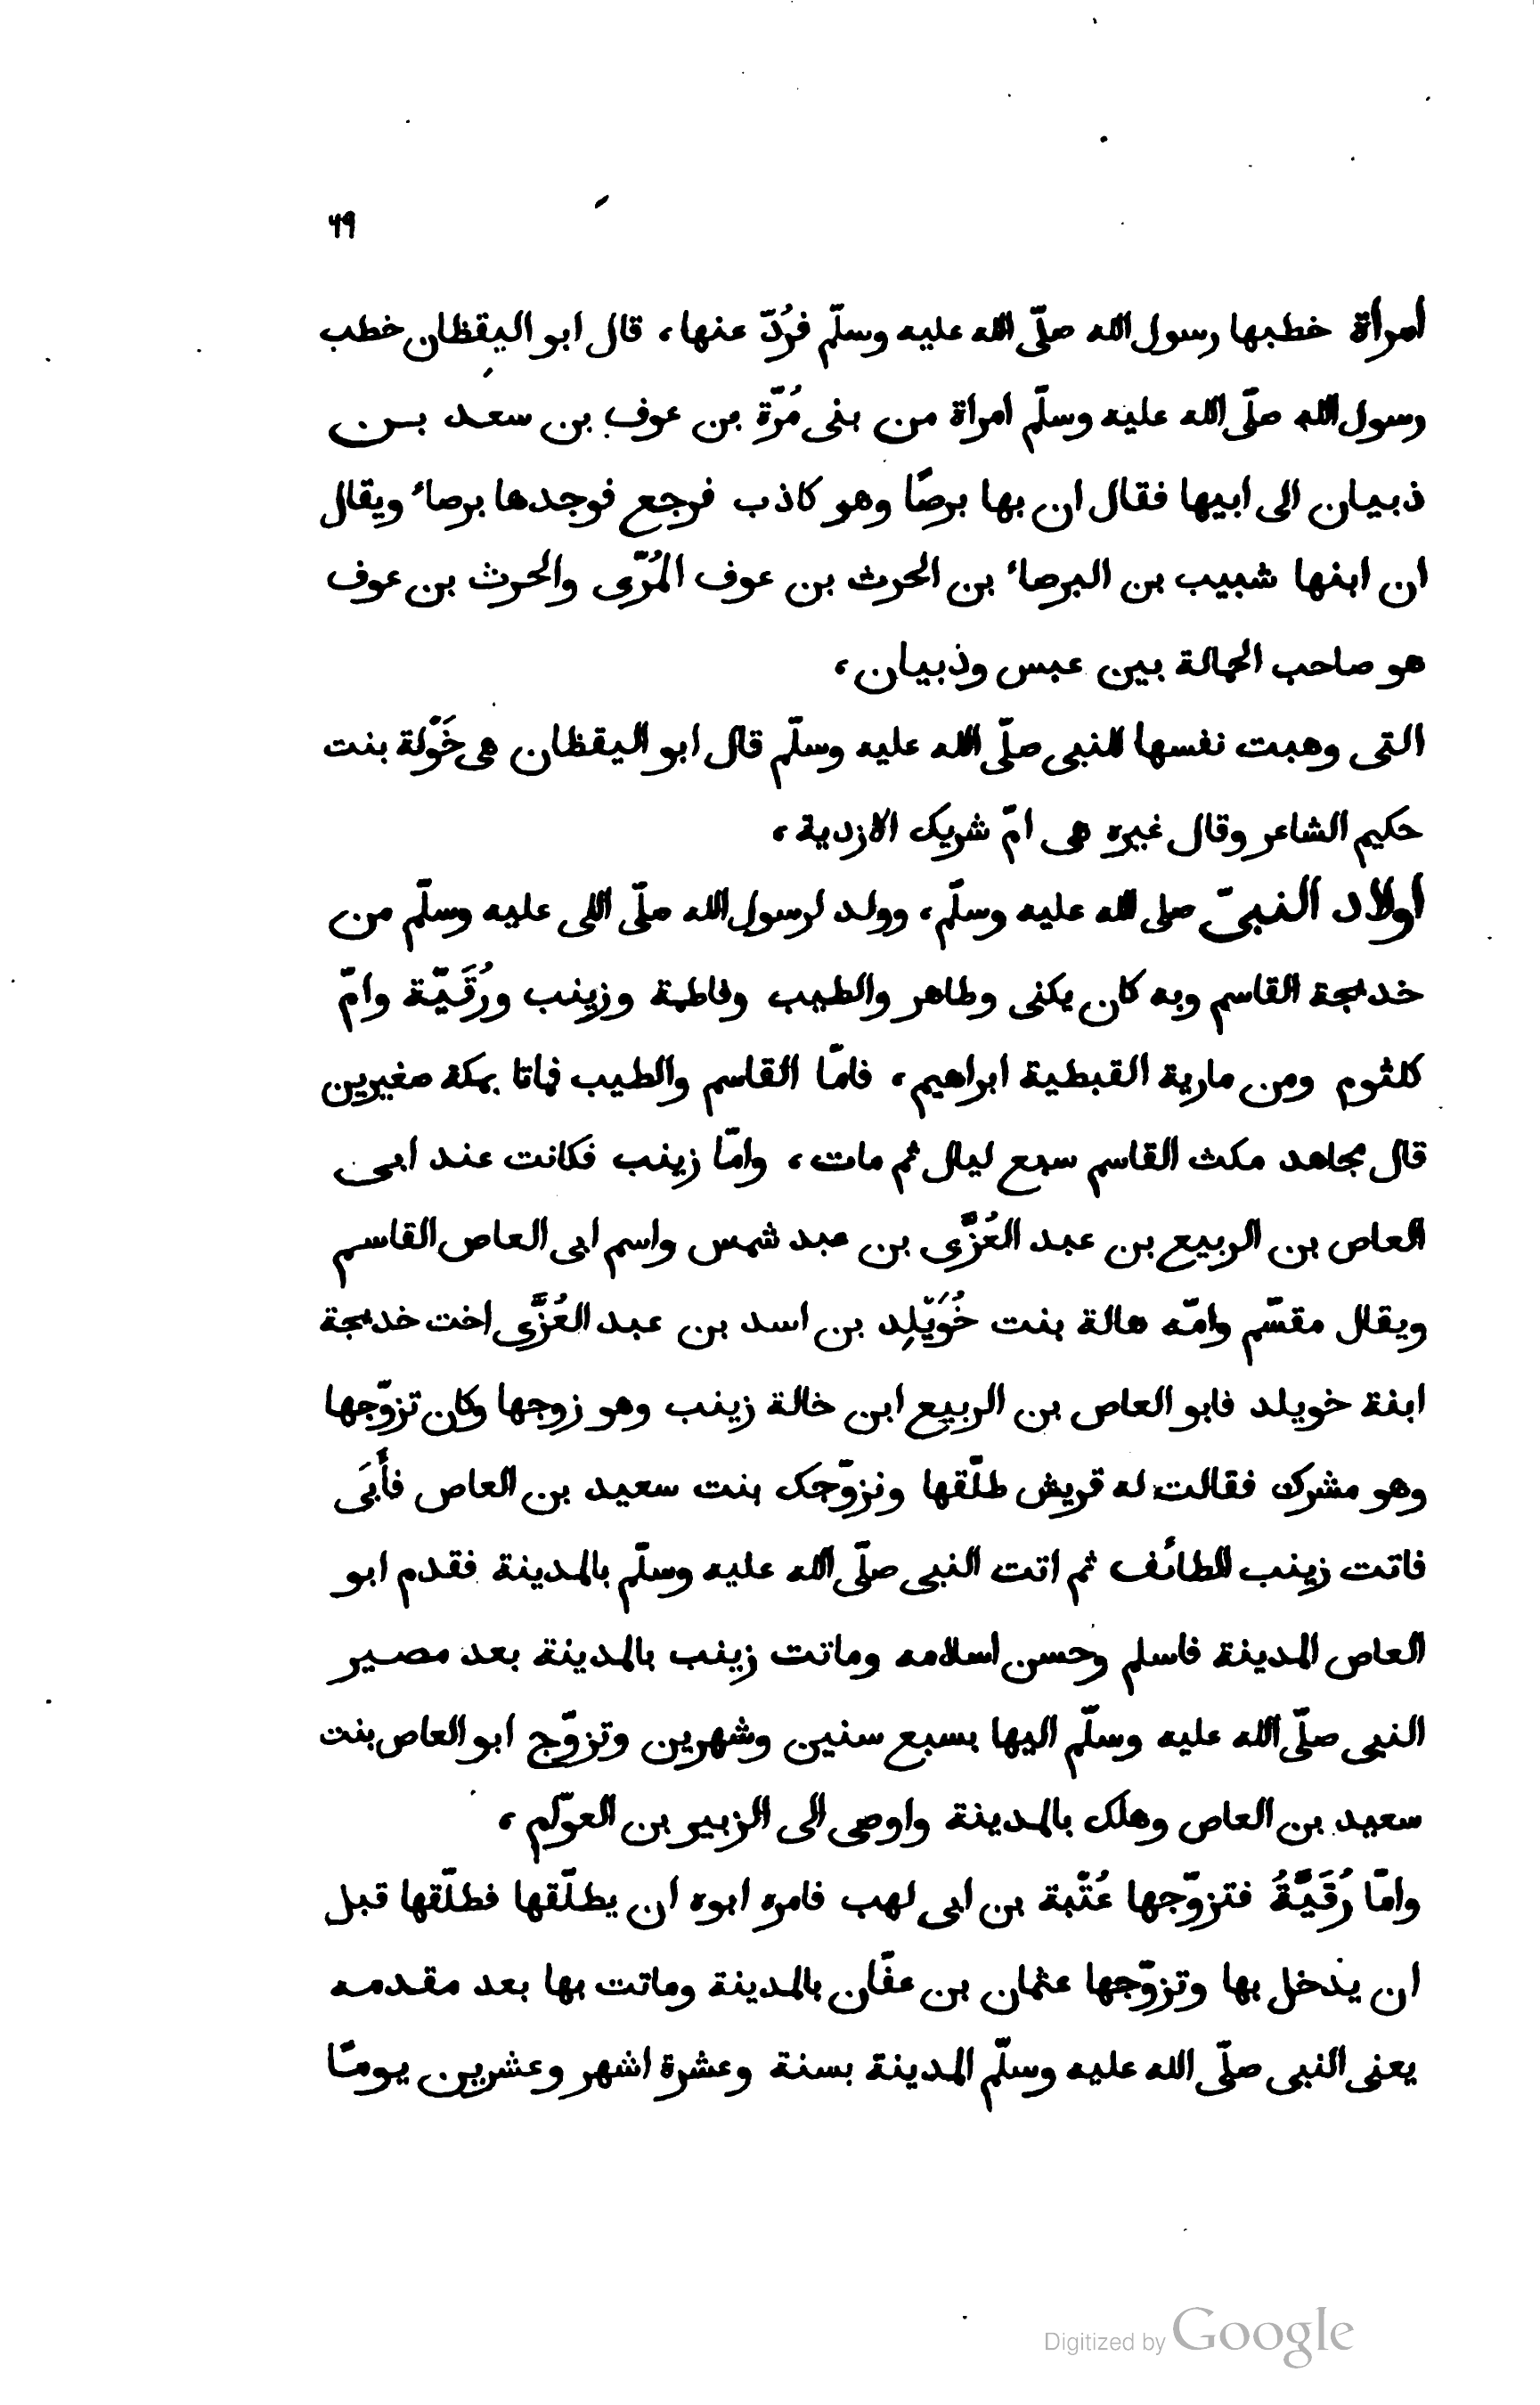 ٦٩
امرأة خطبها رسول الله صلّى الله عليه وسلّم فرُدّ عنها، قال ابو اليقظان خطب
رسول الله صلّى الله عليه وسلّم امراة من بنى مُرّة بن عوف بن سعد بن
ذبيان الى ابيها فقال ان بها برصًا وهو كاذب فرجع فوجدها برصاء ويقال
ان ابنها شبيب بن البرصاء بن الحرث بن عوف المُرّى والحرث بن عوف
هو صاحب الحمالة بين عبس وذبيان،
التى وهبت نفسها للنبى صلّى الله عليه وسلّم قال ابو اليقظان هى خَوْلة بنت
حكيم الشاعر وقال غيره هى امّ شريك الازدية،
اولاد النبىّ صلى الله عليه وسلّم، وولد لرسول الله صلّى اللى عليه وسلّم من
خديجة القاسم وبه كان يكنى وطاهر والطيب وفاطمة وزينب ورُقَيّة وامّ
كلثوم ومن مارية القبطية ابراهيم، فامّا القاسم والطيب فماتا بمكة صغيرين
قال مجاهد مكث القاسم سبع ليال ثم مات، وامّا زينب فكانت عند ابى
العاص بن الربيع بن عبد العُزَّى بن عبد شمس واسم ابى العاص القاسم
ويقال مقسّم وامّه هالة بنت خُوَيْلِد بن اسد بن عبد العُزَّى اخت خديجة
ابنة خويلد فابو العاص بن الربيع ابن خالة زينب وهو زوجها وكان تزوّجها
وهو مشرك فقالت له قريش طلّقها ونزوّجك بنت سعيد بن العاص فأَبَى
فاتت زينب الطائف ثم اتت النبى صلّى الله عليه وسلّم بالمدينة فقدم ابو
العاص المدينة فاسلم وحسن اسلامه وماتت زينب بالمدينة بعد مصير
النبى صلّى الله عليه وسلّم اليها بسبع سنين وشهرين وتزوّج ابو العاص بنت
سعيد بن العاص وهلك بالمدينة واوصى الى الزبير بن العوّام،
وامّا رُقَيَّةُ فتزوّجها عُتْبة بن ابى لهب فامره ابوه ان يطلّقها فطلّقها قبل
ان يدخل بها وتزوّجها عثمان بن عفّان بالمدينة وماتت بها بعد مقدمه
يعنى النبى صلّى الله عليه وسلّم المدينة بسنة وعشرة اشهر وعشرين يومًا
Digitized by Google